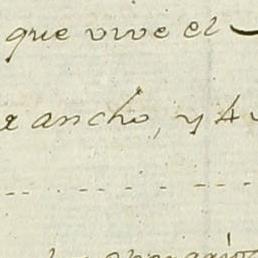 que vive el
ancho, y 4